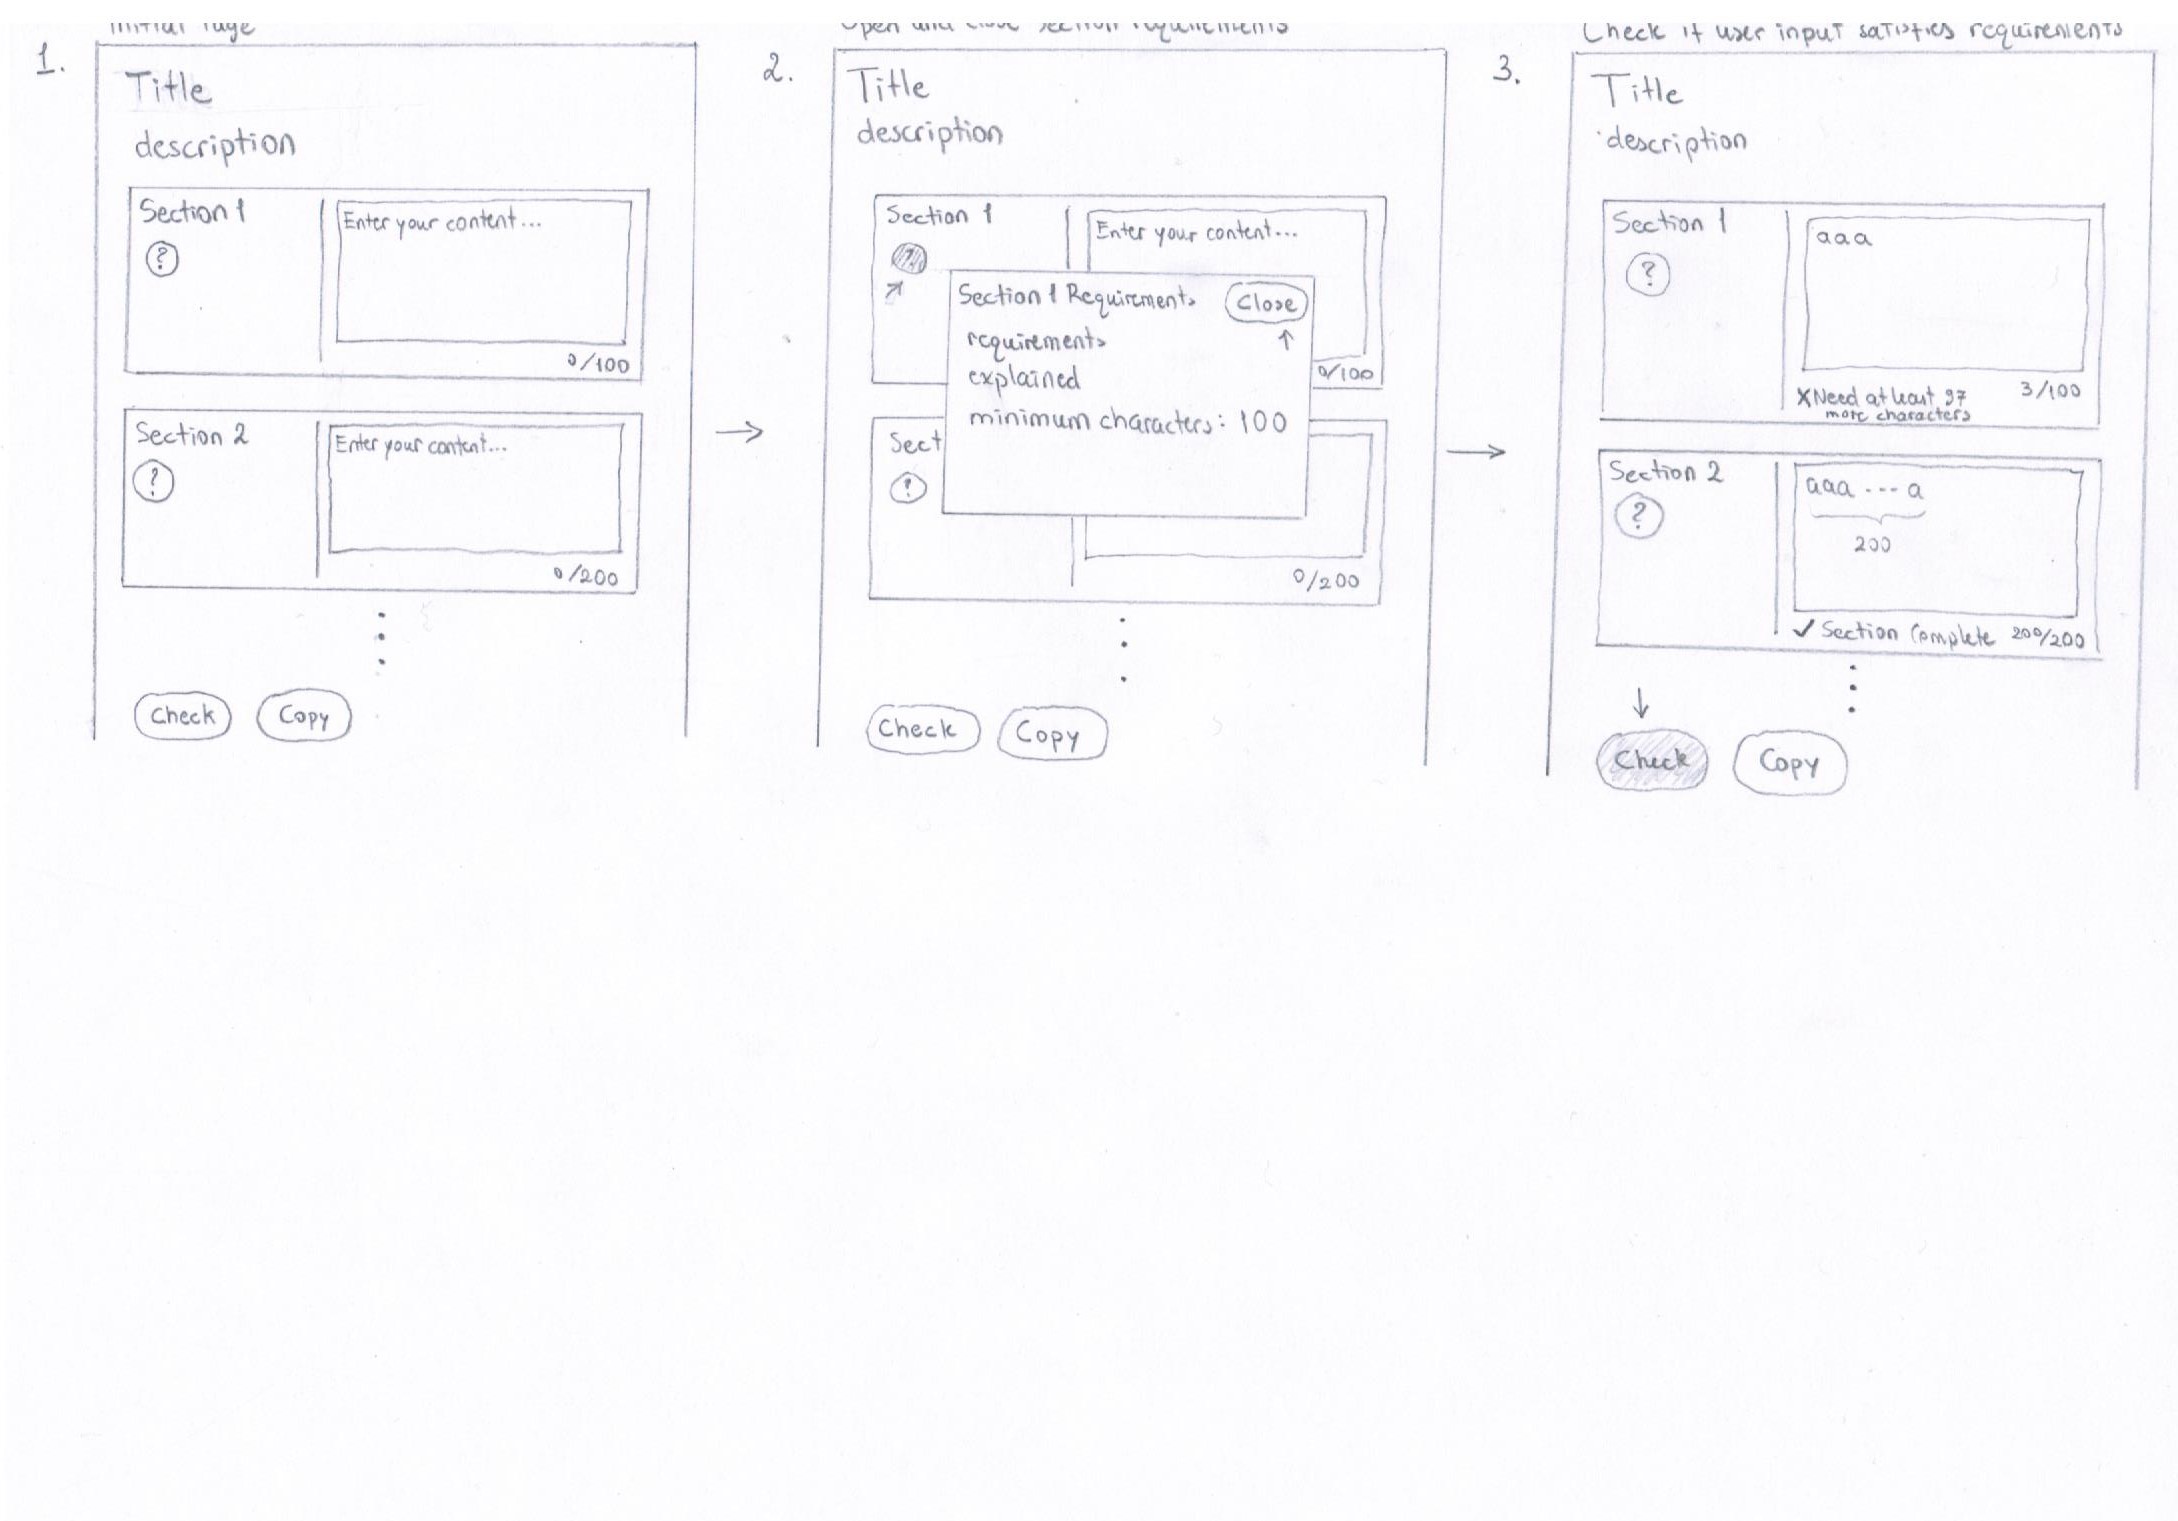 Initial Page
1.
Title
description
Section 1
?
Enter your content...
0/100
Section 2
?
Enter your content...
0/200
Check
Copy
Open and close section requirements
2.
Title
description
Section 1
?
Enter your content...
Section 1 Requirements
Close
requirements
explained
minimum characters: 100
0/100
Sect
?
0/200
Check
Copy
Check if user input satisfies requirements
3.
Title
description
Section 1
?
aaa
X Need at least 97
more characters
3/100
Section 2
?
aaa --- a
200
✓ Section Complete 200/200
Check
Copy